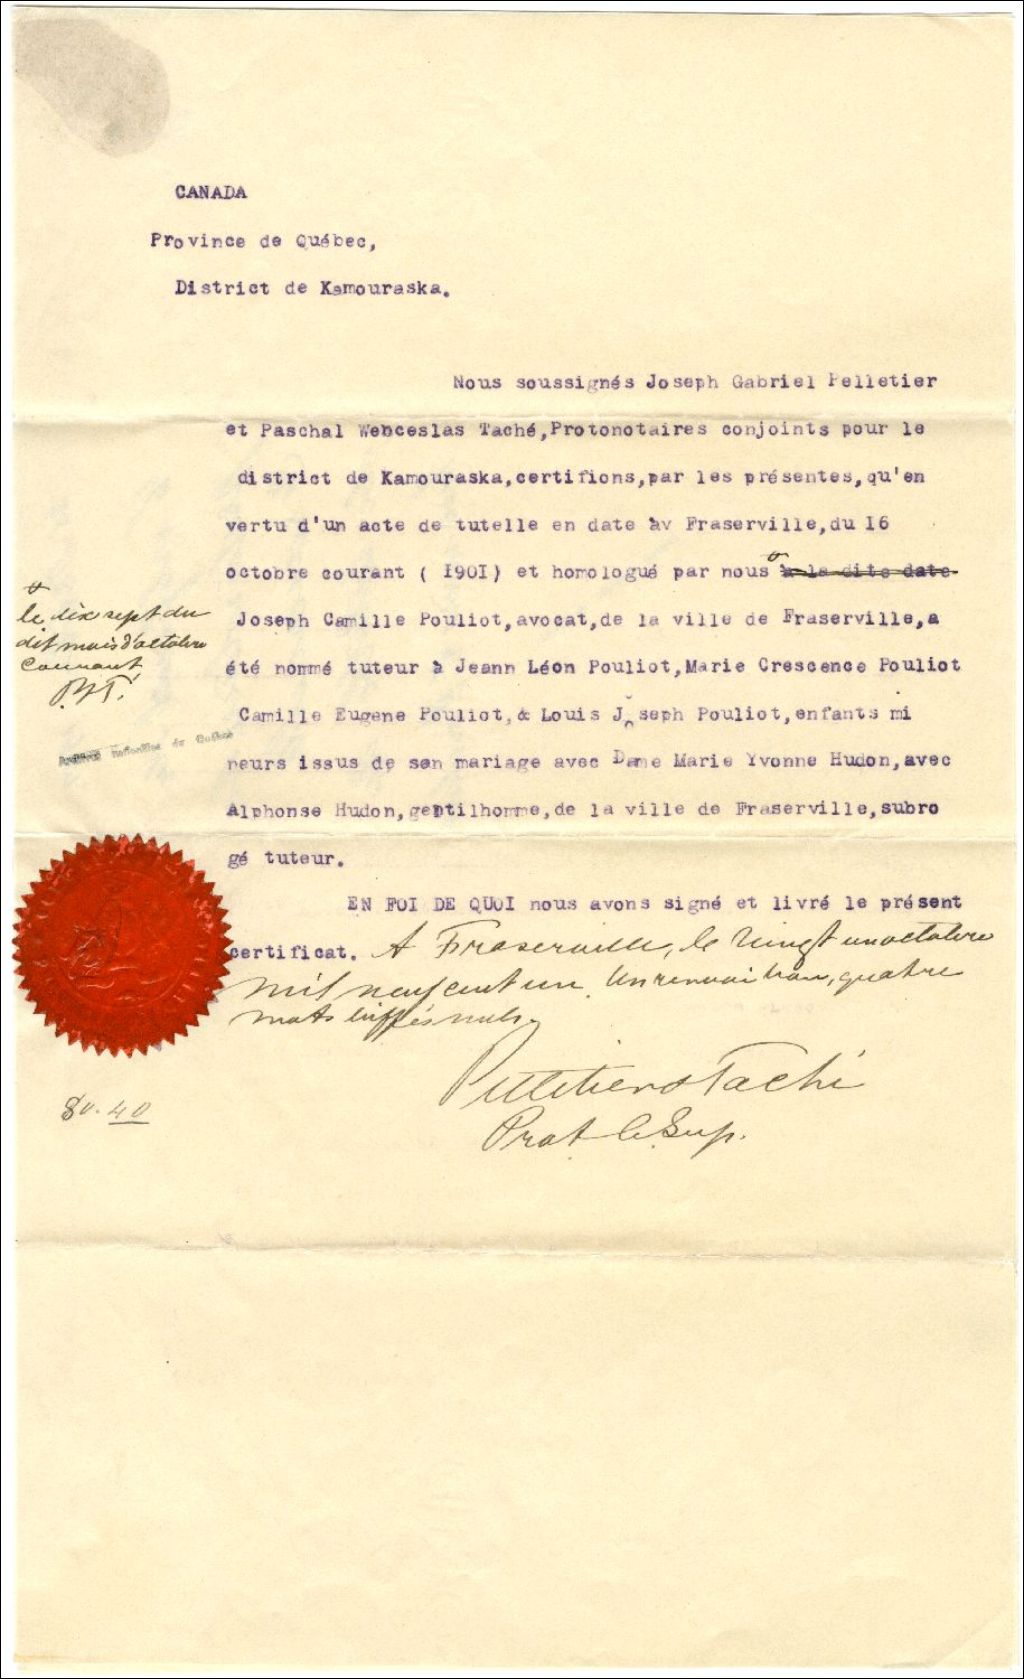 CANADA
Province de Québec,
District de Kamouraska.
Nous soussignés Joseph Gabriel Pelletier
et Paschal Wenceslas Taché,Protonotaires conjoints pour le
district de Kamouraska,certifions,par les présentes,qu'en
vertu d'un acte de tutelle en date àv Fraserville,du 16
octobre courant ( 1901) et homologué par nous à la dite date
le dix sept du
dit mois d'octobre
courant
P.&T.
Joseph Camille Pouliot,avocat,de la ville de Fraserville,a
été nommé tuteur à Jeann Léon Pouliot,Marie Crescence Pouliot
Camille Eugene Pouliot,& Louis Joseph Pouliot,enfants mi
neurs issus de son mariage avec Dame Marie Yvonne Hudon,avec
Archives nationales du Québec
Alphonse Hudon,gentilhomme,de la ville de Fraserville,subro
gé tuteur.
EN FOI DE QUOI nous avons signé et livré le présent
certificat. A Fraserville, le vingt un octobre
mil neuf cent un. Un renvoi bon, quatre
mots biffés nuls.
Pelletier & Taché
Prot. C. Sup.
80.40